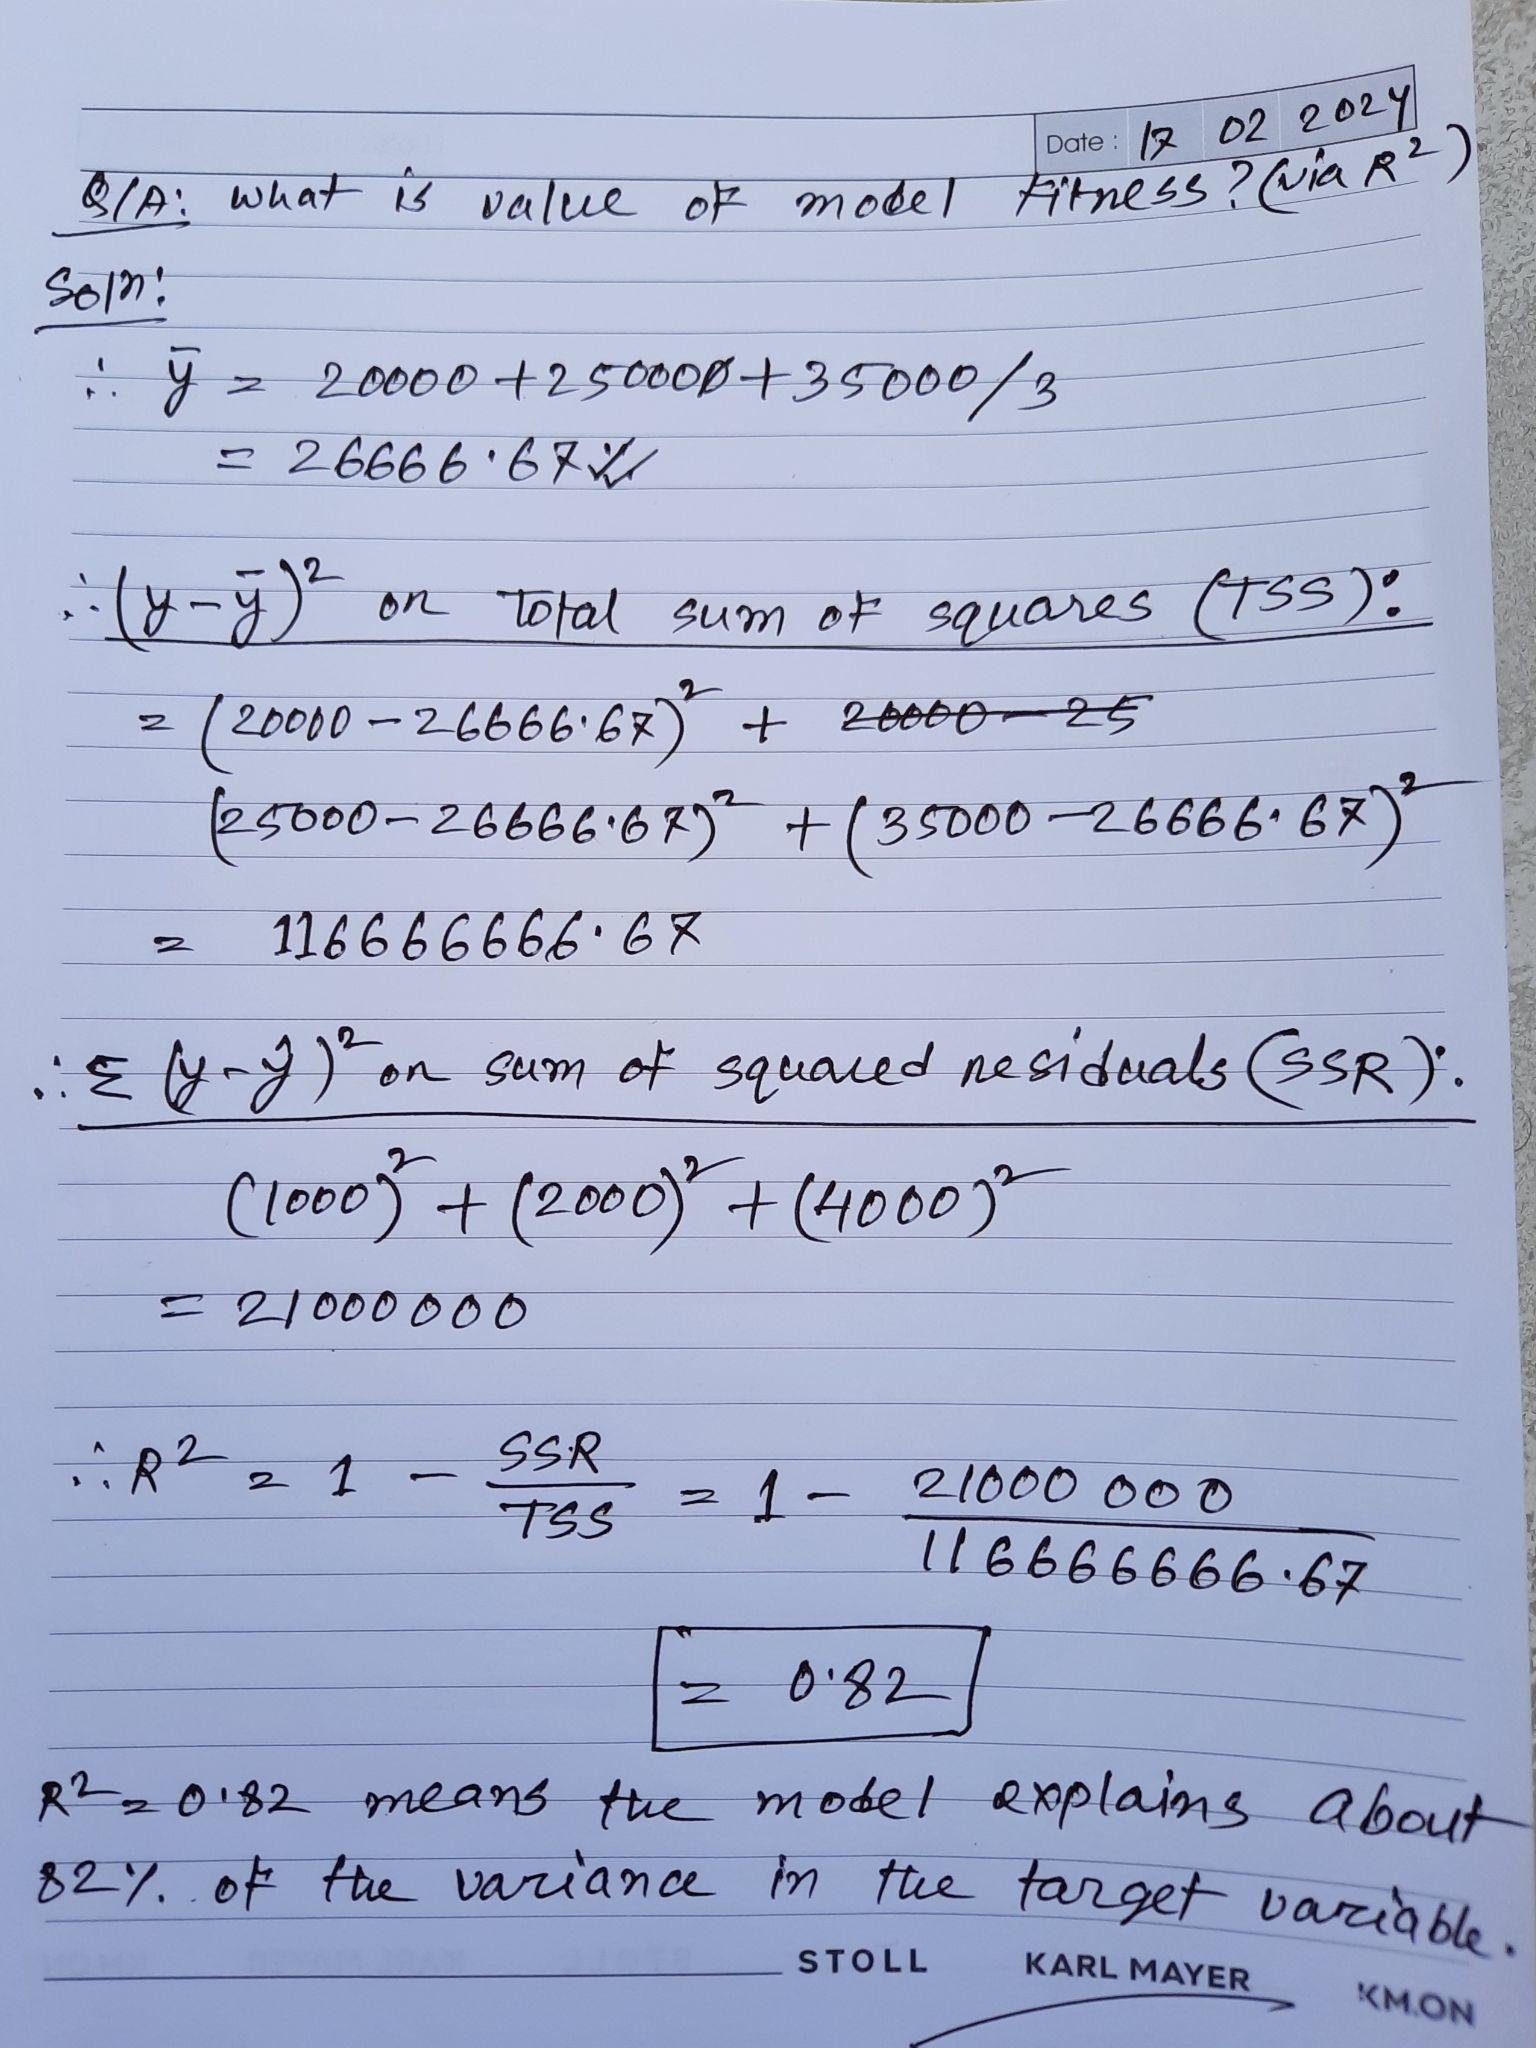 Date : 17 02 2024
Q/A: What is value of model fitness? (via R²)
Soln:
∴ ȳ = 20000 + 250000 + 35000/3
= 26666.67
∴ (y - ȳ)² or Total sum of squares (TSS):
= (20000 - 26666.67)² + 20000 - 25
(25000 - 26666.67)² + (35000 - 26666.67)²
= 116666666.67
∴ Σ (y - ŷ)² or sum of squared residuals (SSR):
(1000)² + (2000)² + (4000)²
= 21000000
∴ R² = 1 - SSR/TSS = 1 - 21000 000/116666666.67
= 0.82
R² = 0.82 means the model explains about
82%. of the variance in the target variable.
STOLL KARL MAYER KM.ON